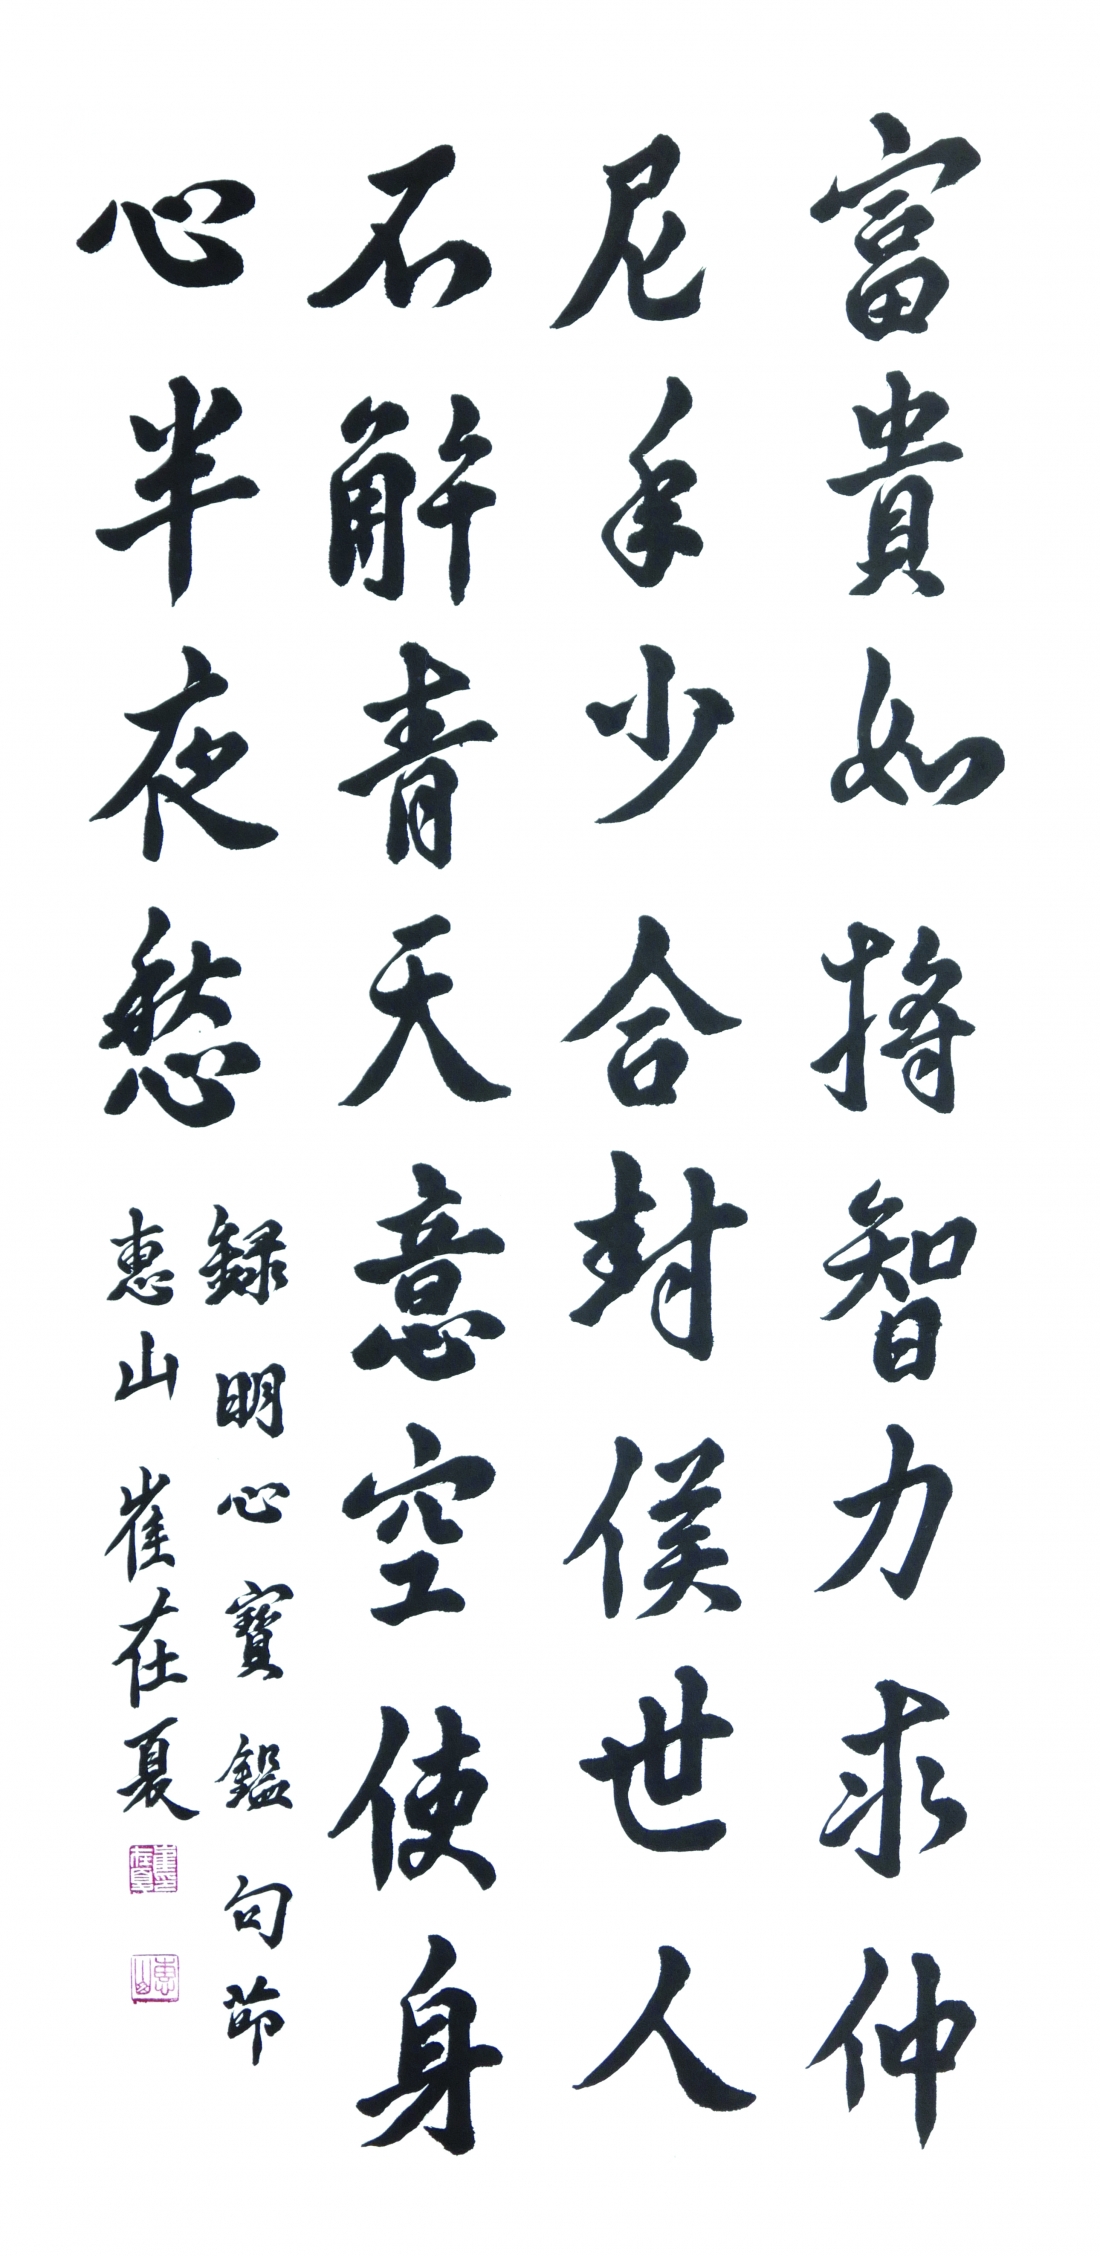 富貴如將智力求仲
尼年少合封侯世人
不解青天意空使身
心半夜愁
録明心寶鑑句節
惠山 崔在夏